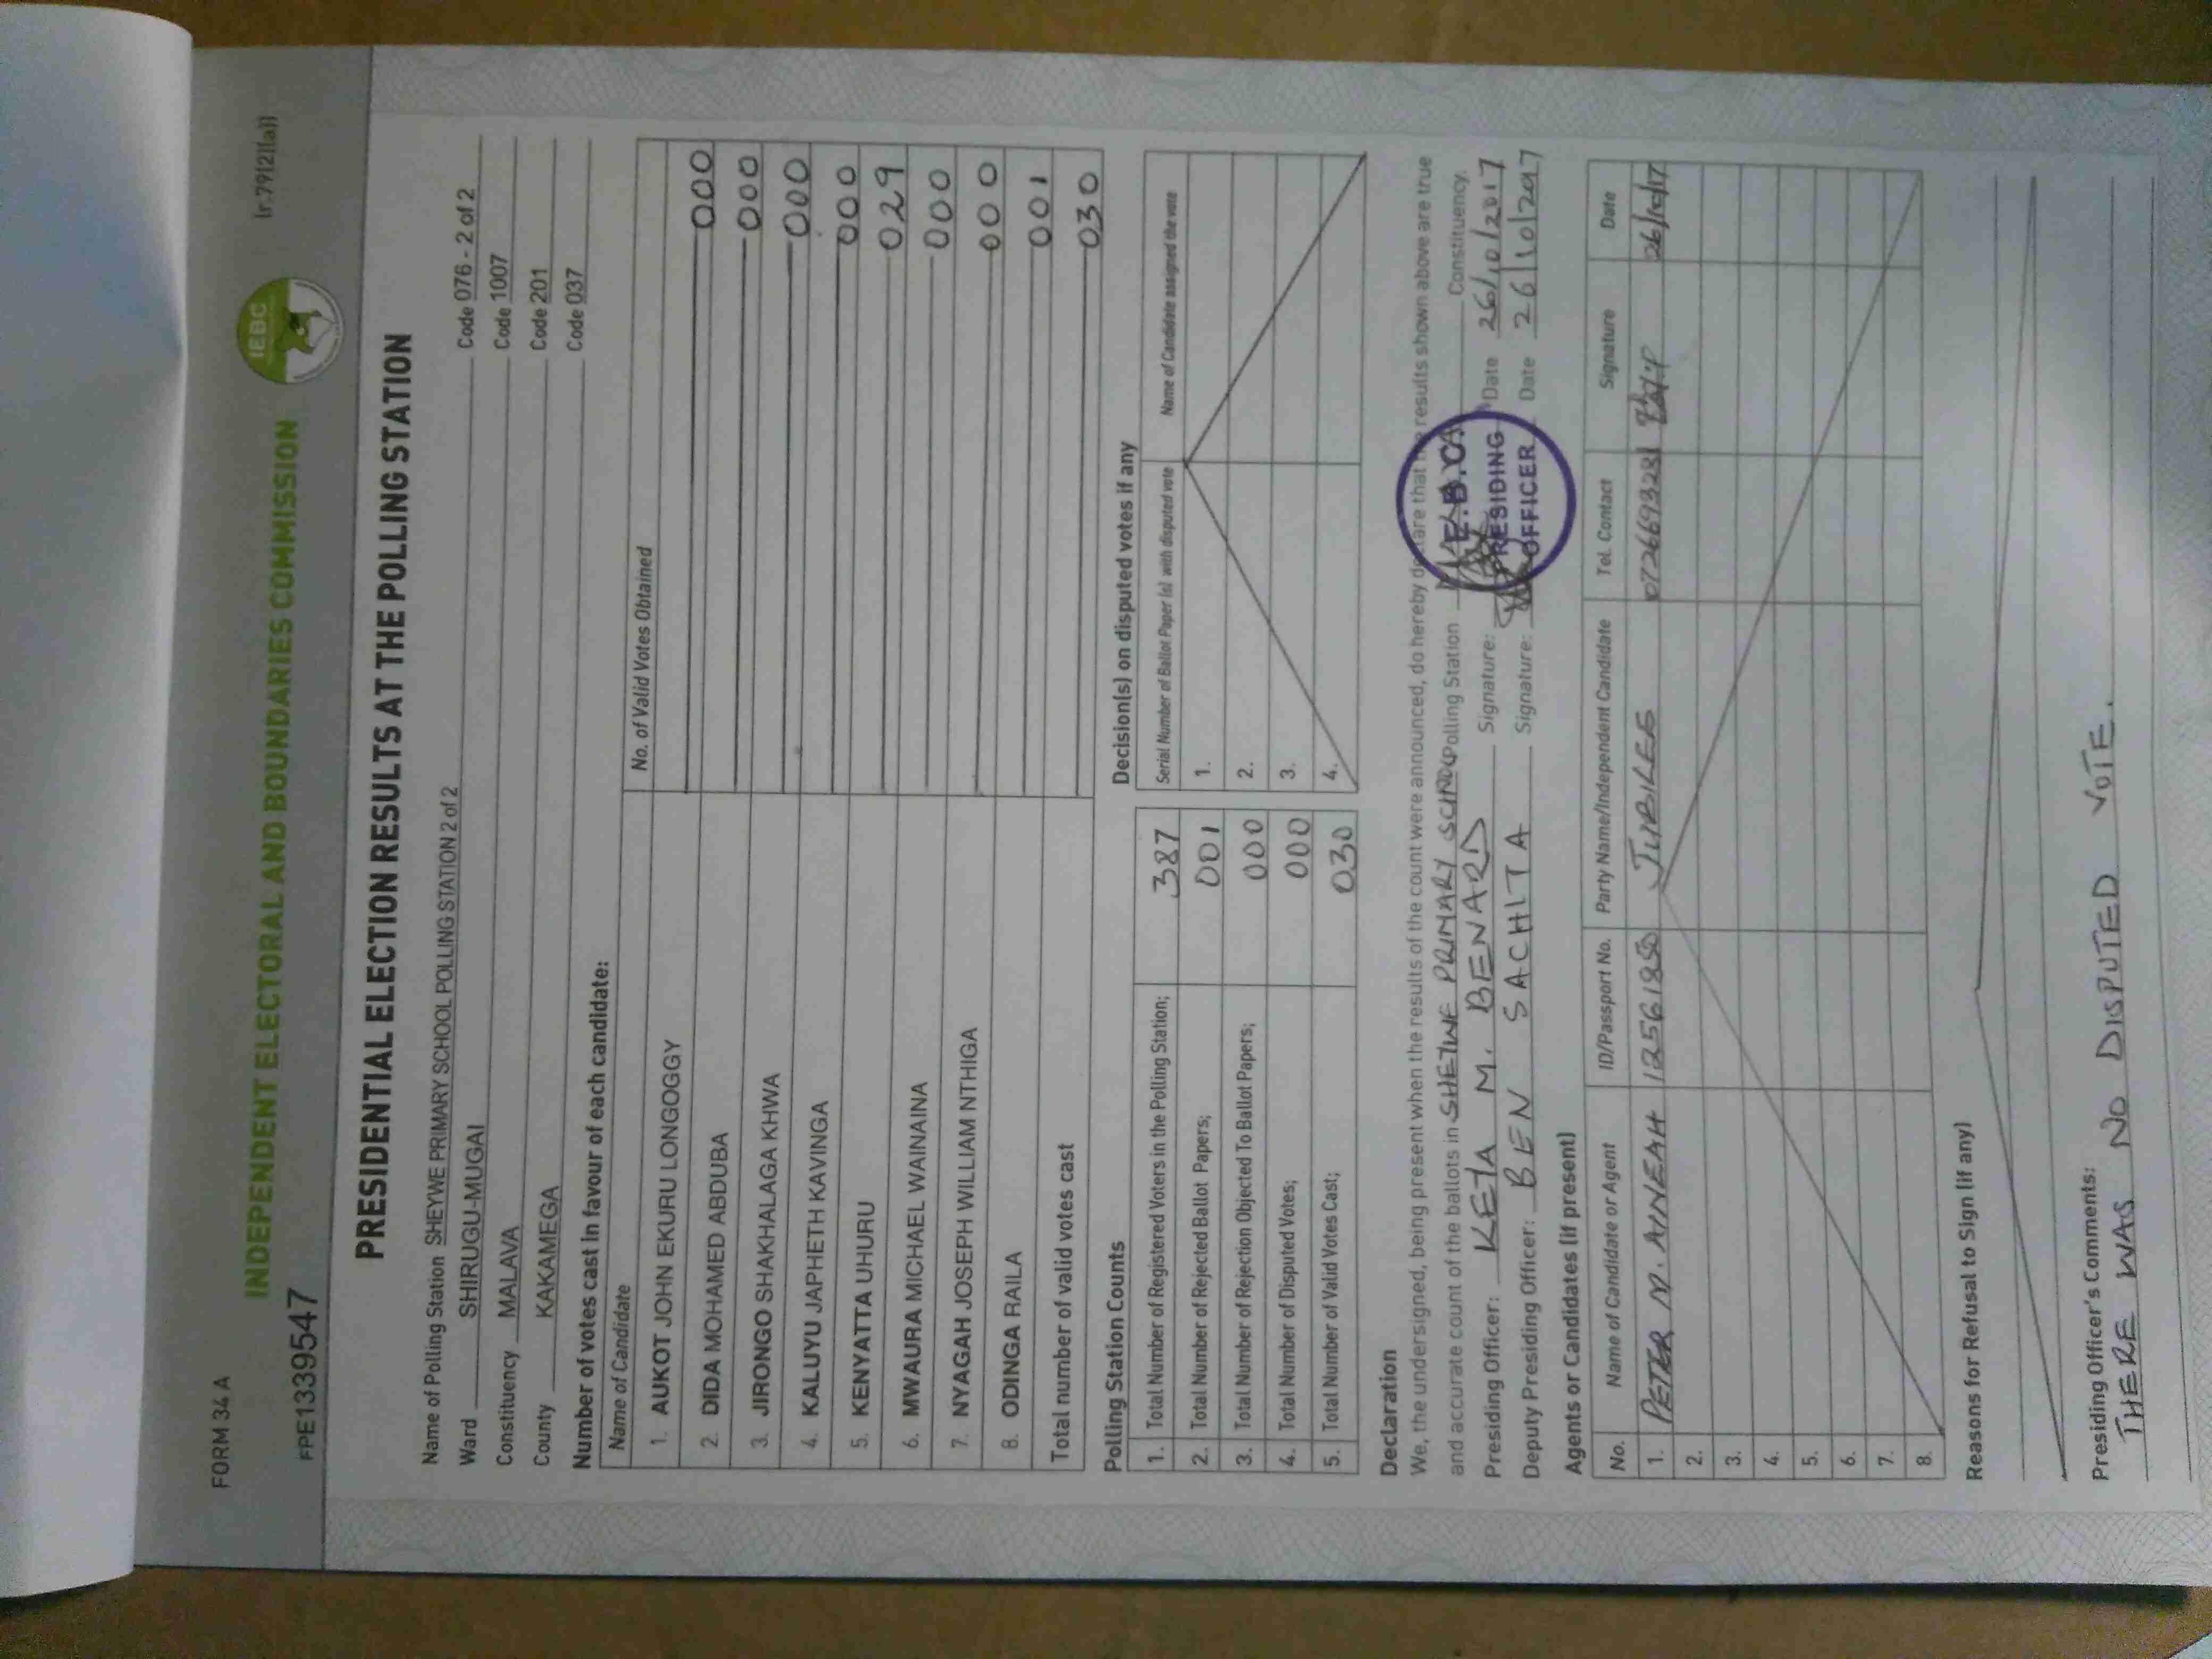 FORM 34 A
INDEPENDENT ELECTORAL AND BOUNDARIES COMMISSION
IEBC
(r.79(2)(a))
FPE1339547
PRESIDENTIAL ELECTION RESULTS AT THE POLLING STATION
Name of Polling Station SHEYWE PRIMARY SCHOOL POLLING STATION 2 of 2 Code 076 - 2 of 2
Ward SHIRUGU-MUGAI Code 1007
Constituency MALAVA Code 201
County KAKAMEGA Code 037
Number of votes cast in favour of each candidate:
Name of Candidate No. of Valid Votes Obtained
1. AUKOT JOHN EKURU LONGOGGY 000
2. DIDA MOHAMED ABDUBA 000
3. JIRONGO SHAKHALAGA KHWA 000
4. KALUYU JAPHETH KAVINGA 000
5. KENYATTA UHURU 029
6. MWAURA MICHAEL WAINAINA 000
7. NYAGAH JOSEPH WILLIAM NTHIGA 000
8. ODINGA RAILA 001
Total number of valid votes cast 030
Polling Station Counts
1. Total Number of Registered Voters in the Polling Station; 387
2. Total Number of Rejected Ballot Papers; 001
3. Total Number of Rejection Objected To Ballot Papers; 000
4. Total Number of Disputed Votes; 000
5. Total Number of Valid Votes Cast; 030
Decision(s) on disputed votes if any
Serial Number of Ballot Paper (s) with disputed vote Name of Candidate assigned the vote
1.
2.
3.
4.
Declaration
We, the undersigned, being present when the results of the count were announced, do hereby declare that the results shown above are true
and accurate count of the ballots in SHEYWE PRIMARY SCHOOL Polling Station Constituency.
Presiding Officer: KEYA M. BENARD Signature: Date 26/10/2017
Deputy Presiding Officer: BEN SACHITA Signature: Date 26/10/2017
I.E.B.C.
PRESIDING
OFFICER
Agents or Candidates (if present)
No. Name of Candidate or Agent ID/Passport No. Party Name/Independent Candidate Tel. Contact Signature Date
1. PETER M. AINEAH 12561850 JUBILEE 0726693281 26/10/17
2.
3.
4.
5.
6.
7.
8.
Reasons for Refusal to Sign (if any)
Presiding Officer's Comments:
THERE WAS NO DISPUTED VOTE.